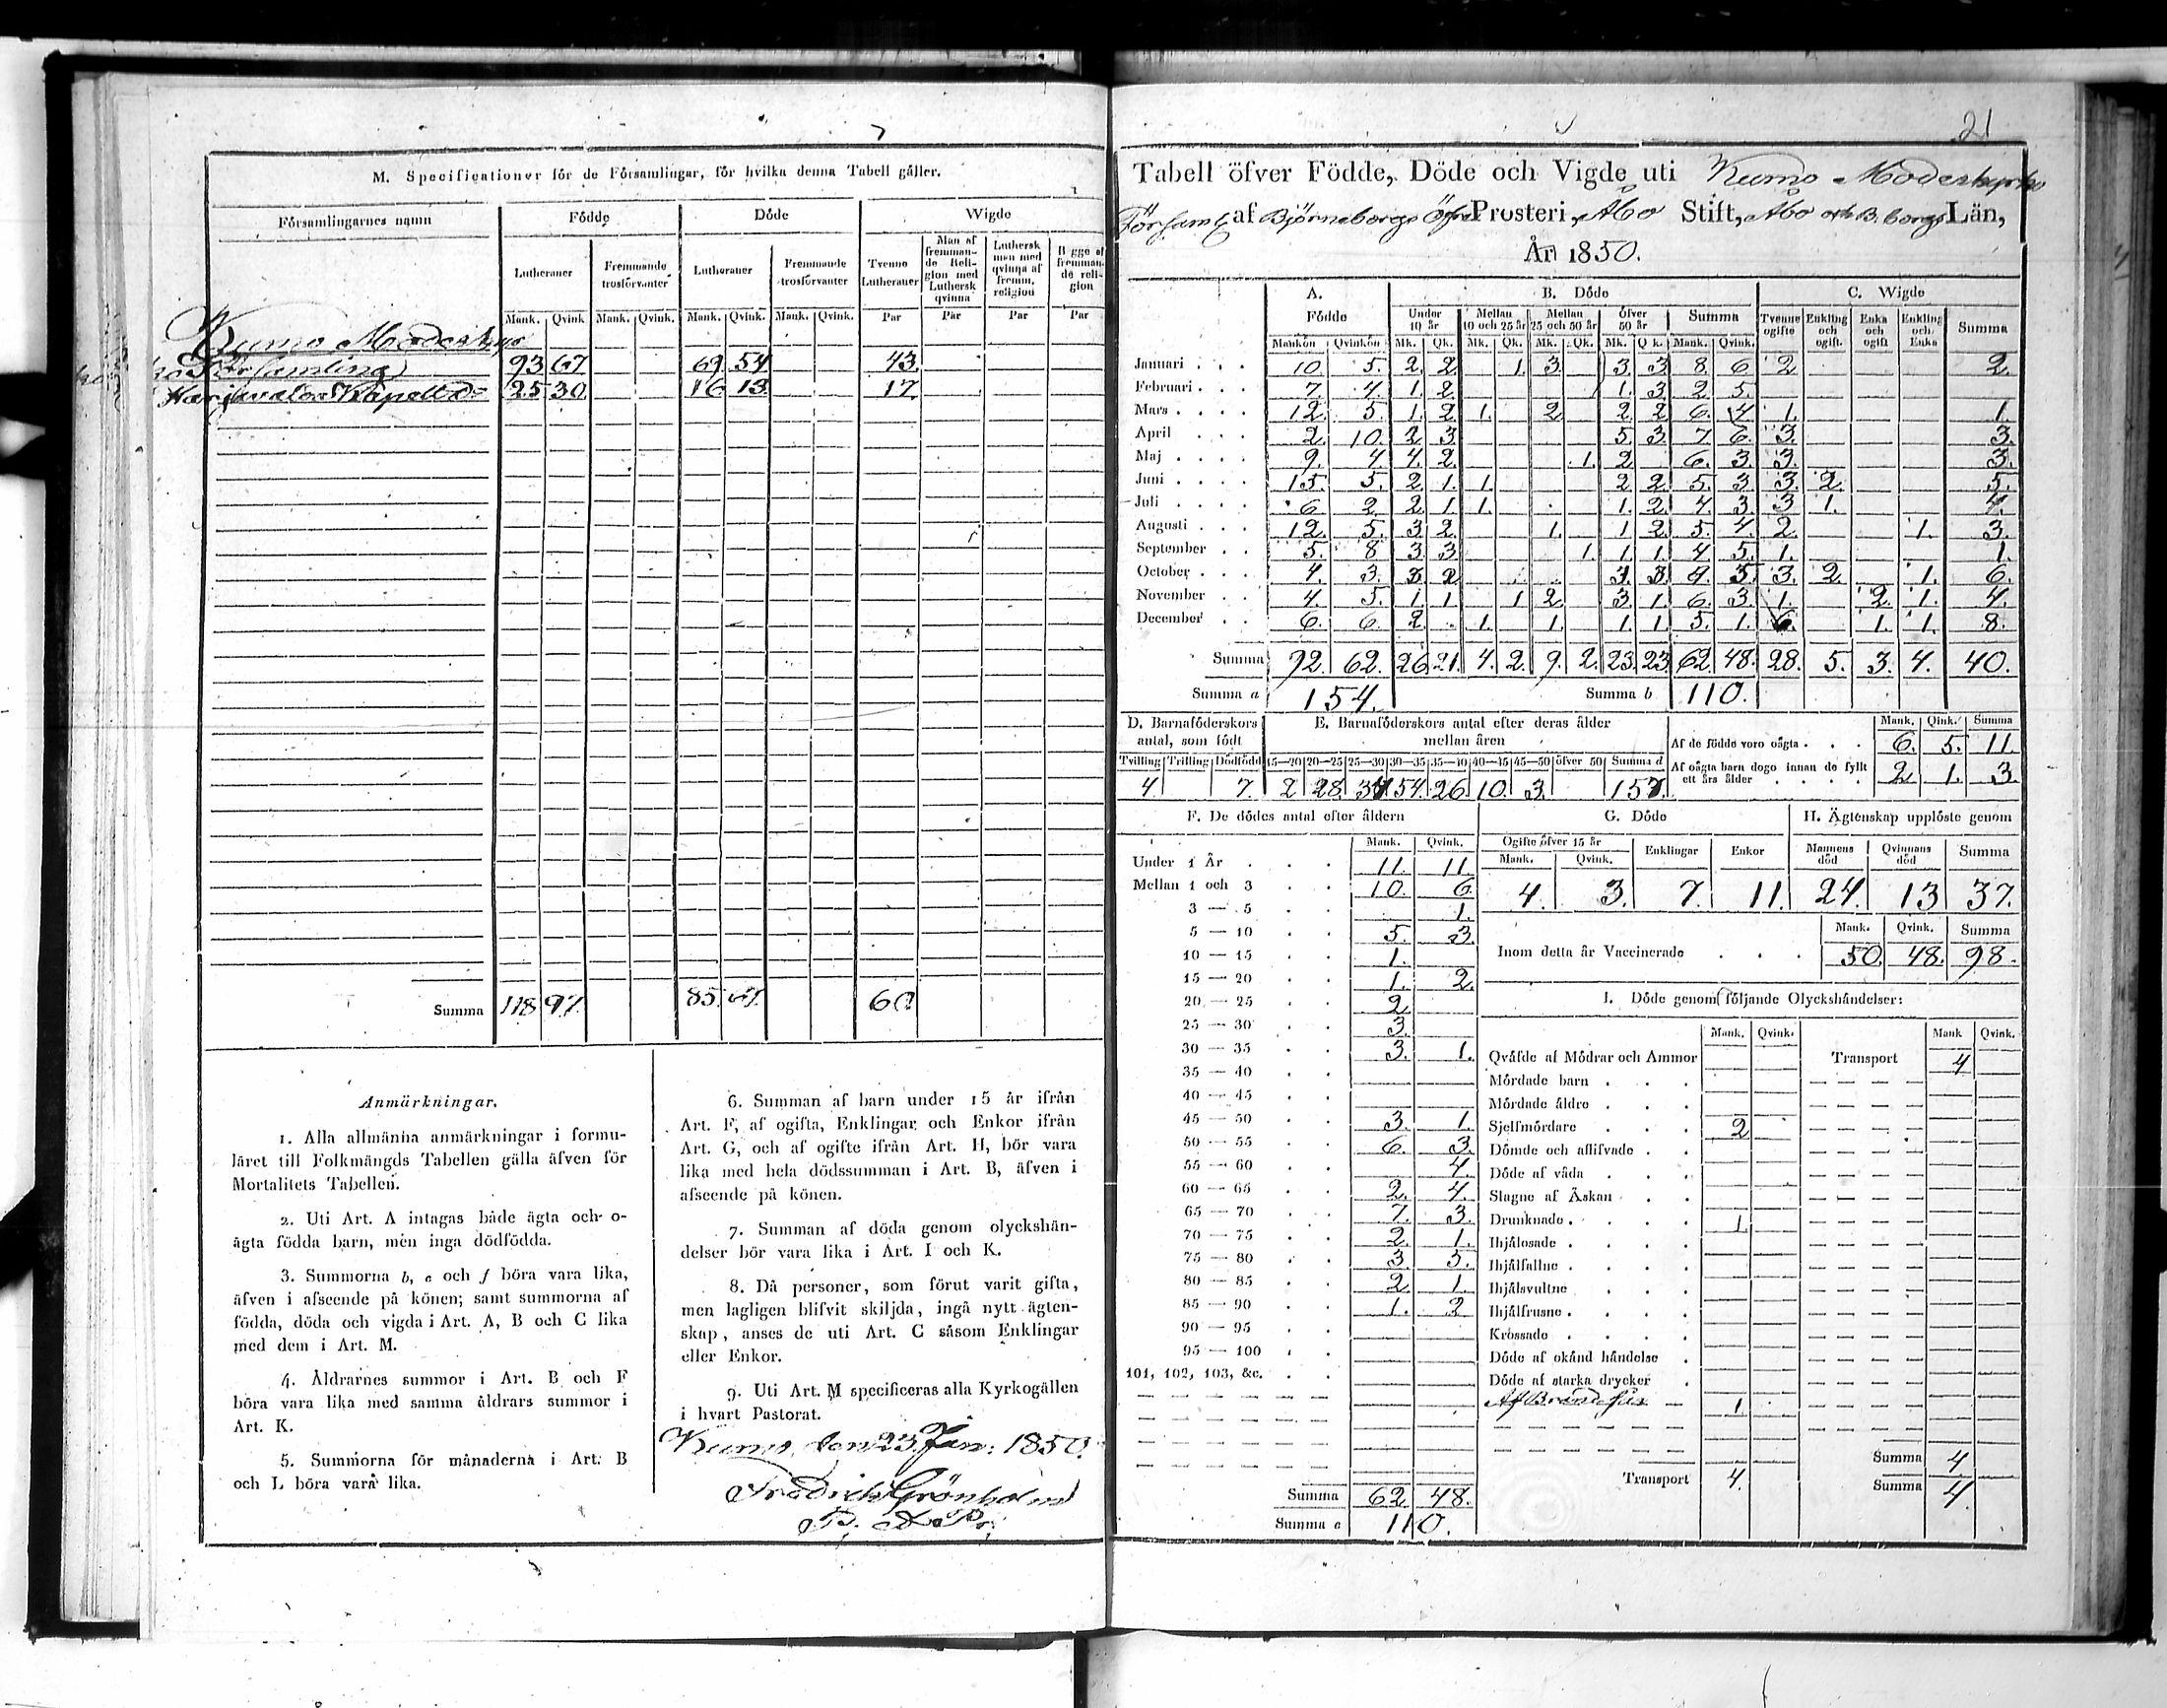 7
M. Specificationer för de Församlingar, för hvilka denna Tabell gäller.
Församlingarnes namn | Födde | Döde | Wigde
Lutheraner | Fremmande trosförvanter | Lutheraner | Fremmande trosförvanter | Tvenne Lutheraner | Man af fremmande Religion med Luthersk qvinna | Luthersk man med qvinna af fremm. religion | Bägge af fremmande religion
Mank. | Qvink | Mank. | Qvink. | Mank. | Qvink. | Mank. | Qvink. | Par | Par | Par | Par
Kumo Moderkyr
ko Församling 93 67 69 54 43
Harjavalla Kapell d:o 25 30 16 13 17
Summa 118 97. 85. 67. 60
Anmärkningar.
1. Alla allmänna anmärkningar i formu-
läret till Folkmängds Tabellen gälla äfven för
Mortalitets Tabellen.
2. Uti Art. A intagas både ägta och o-
ägta födda barn, men inga dödfödda.
3. Summorna b, e och f böra vara lika,
äfven i afseende på könen; samt summorna af
födda, döda och vigda i Art. A, B och C lika
med dem i Art. M.
4. Åldrarnes summor i Art. B och F
böra vara lika med samma åldrars summor i
Art. K.
5. Summorna för månaderna i Art. B
och L böra vara lika.
6. Summan af barn under 15 år ifrån
Art. F, af ogifta, Enklingar och Enkor ifrån
Art. G, och af ogifte ifrån Art. H, bör vara
lika med hela dödssumman i Art. B, äfven i
afseende på könen.
7. Summan af döda genom olyckshän-
delser bör vara lika i Art. I och K.
8. Då personer, som förut varit gifta,
men lagligen blifvit skiljda, ingå nytt ägten-
skap, anses de uti Art. C såsom Enklingar
eller Enkor.
9. Uti Art. M specificeras alla Kyrkogällen
i hvart Pastorat.
Kumo, den 23 Jan: 1850.
Fredrick Grönholm
21
Tabell öfver Födde, Döde och Vigde uti Kumo Moderkyrko
Församl. af Björneborgs Öfre Prosteri, Åbo Stift, Åbo och B:borgs Län,
År 1850.
A. Födde | B. Döde | C. Wigde
Under 10 år | Mellan 10 och 25 år | Mellan 25 och 50 år | öfver 50 år | Summa | Tvenne ogifte | Enkling och ogift. | Enka och ogift | Enkling och Enka | Summa
Mankön | Qvinkön | Mk. | Qk. | Mk. | Qk. | Mk. | Qk. | Mk. | Qk. | Mank. | Qvink.
Januari . . . 10. 5. 2. 2. 1. 3. 3. 3. 8. 6. 2 2.
Februari . . . 7. 4. 1. 2. 1. 3. 2. 5.
Mars . . . . 12. 5. 1. 2. 1. 2. 2. 2. 6. 4. 1. 1.
April . . . 2. 10. 2. 3. 5. 3. 7. 6. 3. 3.
Maj . . . . 9. 4. 4. 2. 1. 2. 6. 3. 3. 3.
Juni . . . . 15. 5. 2. 1. 1. 2. 2. 5. 3. 3. 2. 5.
Juli . . . . 6 2. 2. 1. 1. 1. 2. 4. 3. 3 1. 4.
Augusti . . . 12. 5. 3. 2. 1. 1. 2. 5. 4. 2. 1. 3.
September . . 5. 8 3. 3. 1. 1. 1. 4. 5. 1. 1.
October . . . 4. 3. 3. 2. 1. 3. 4. 5. 3. 2. 1. 6.
November . . 4. 5. 1. 1. 1 2. 3. 1. 6. 3. 1. 2. 1. 4.
December . . 6. 6. 2. 1. 1. 1. 1. 5. 1. 6. 1. 1. 8.
Summa 92. 62. 26. 21. 4. 2. 9. 2. 23. 23. 62. 48. 28. 5. 3. 4. 40.
Summa a 154. Summa b 110.
D. Barnaföderskors antal, som födt | E. Barnaföderskors antal efter deras ålder mellan åren
Tvilling | Trilling | Dödfödd | 15—20 | 20—25 | 25—30 | 30—35 | 35—40 | 40—45 | 45—50 | öfver 50 | Summa d
4. 7. 2 28. 34 54. 26 10. 3. 157.
Mank. | Qink. | Summa
Af de födde voro oägta . . . 6. 5. 11.
Af oägta barn dogo innan de fyllt ett års ålder . . . . 2. 1. 3.
F. De dödes antal efter åldern
Mank. | Qvink.
Under 1 År . . . 11. 11.
Mellan 1 och 3 . . 10. 6.
3 — 5 . . 1.
5 — 10 . . 5. 3.
10 — 15 . . 1.
15 — 20 . . 1. 2.
20 — 25 . . 2
25 — 30 . . 3.
30 — 35 . . 3. 1.
35 — 40 . .
40 — 45 . .
45 — 50 . . 3. 1.
50 — 55 . . 6. 3.
55 — 60 . . 4.
60 — 65 . . 2. 4.
65 — 70 . . 7. 3.
70 — 75 . . 2. 1.
75 — 80 . . 3. 5.
80 — 85 . . 2. 1.
85 — 90 . . 1. 2
90 — 95 . .
95 — 100 . .
101, 102, 103, &c. . .
Summa 62 48.
Summa e 110.
G. Döde | H. Ägtenskap upplöste genom
Ogifte öfver 15 år | Enklingar | Enkor | Mannens död | Qvinnans död | Summa
Mank. | Qvink.
4. 3. 7. 11. 24. 13 37.
Mank. | Qvink. | Summa
Inom detta år Vaccinerade . . . 50. 48. 98.
I. Döde genom följande Olyckshändelser:
Mank. | Qvink. | Mank | Qvink.
Qväfde af Mödrar och Ammor | Transport 4
Mördade barn . . .
Mördade äldre . . .
Sjelfmördare . . . 2
Dömde och aflifvade . .
Döde af våda . . .
Slagne af Åskan . .
Drunknade . . . . 1.
Ihjälosade . . . .
Ihjälfallne . . . .
Ihjälsvultne . . .
Ihjälfrusne . . . .
Krossade . . . .
Döde af okänd händelse .
Döde af starka drycker .
1.
Summa 4
Transport 4.
Summa 4.